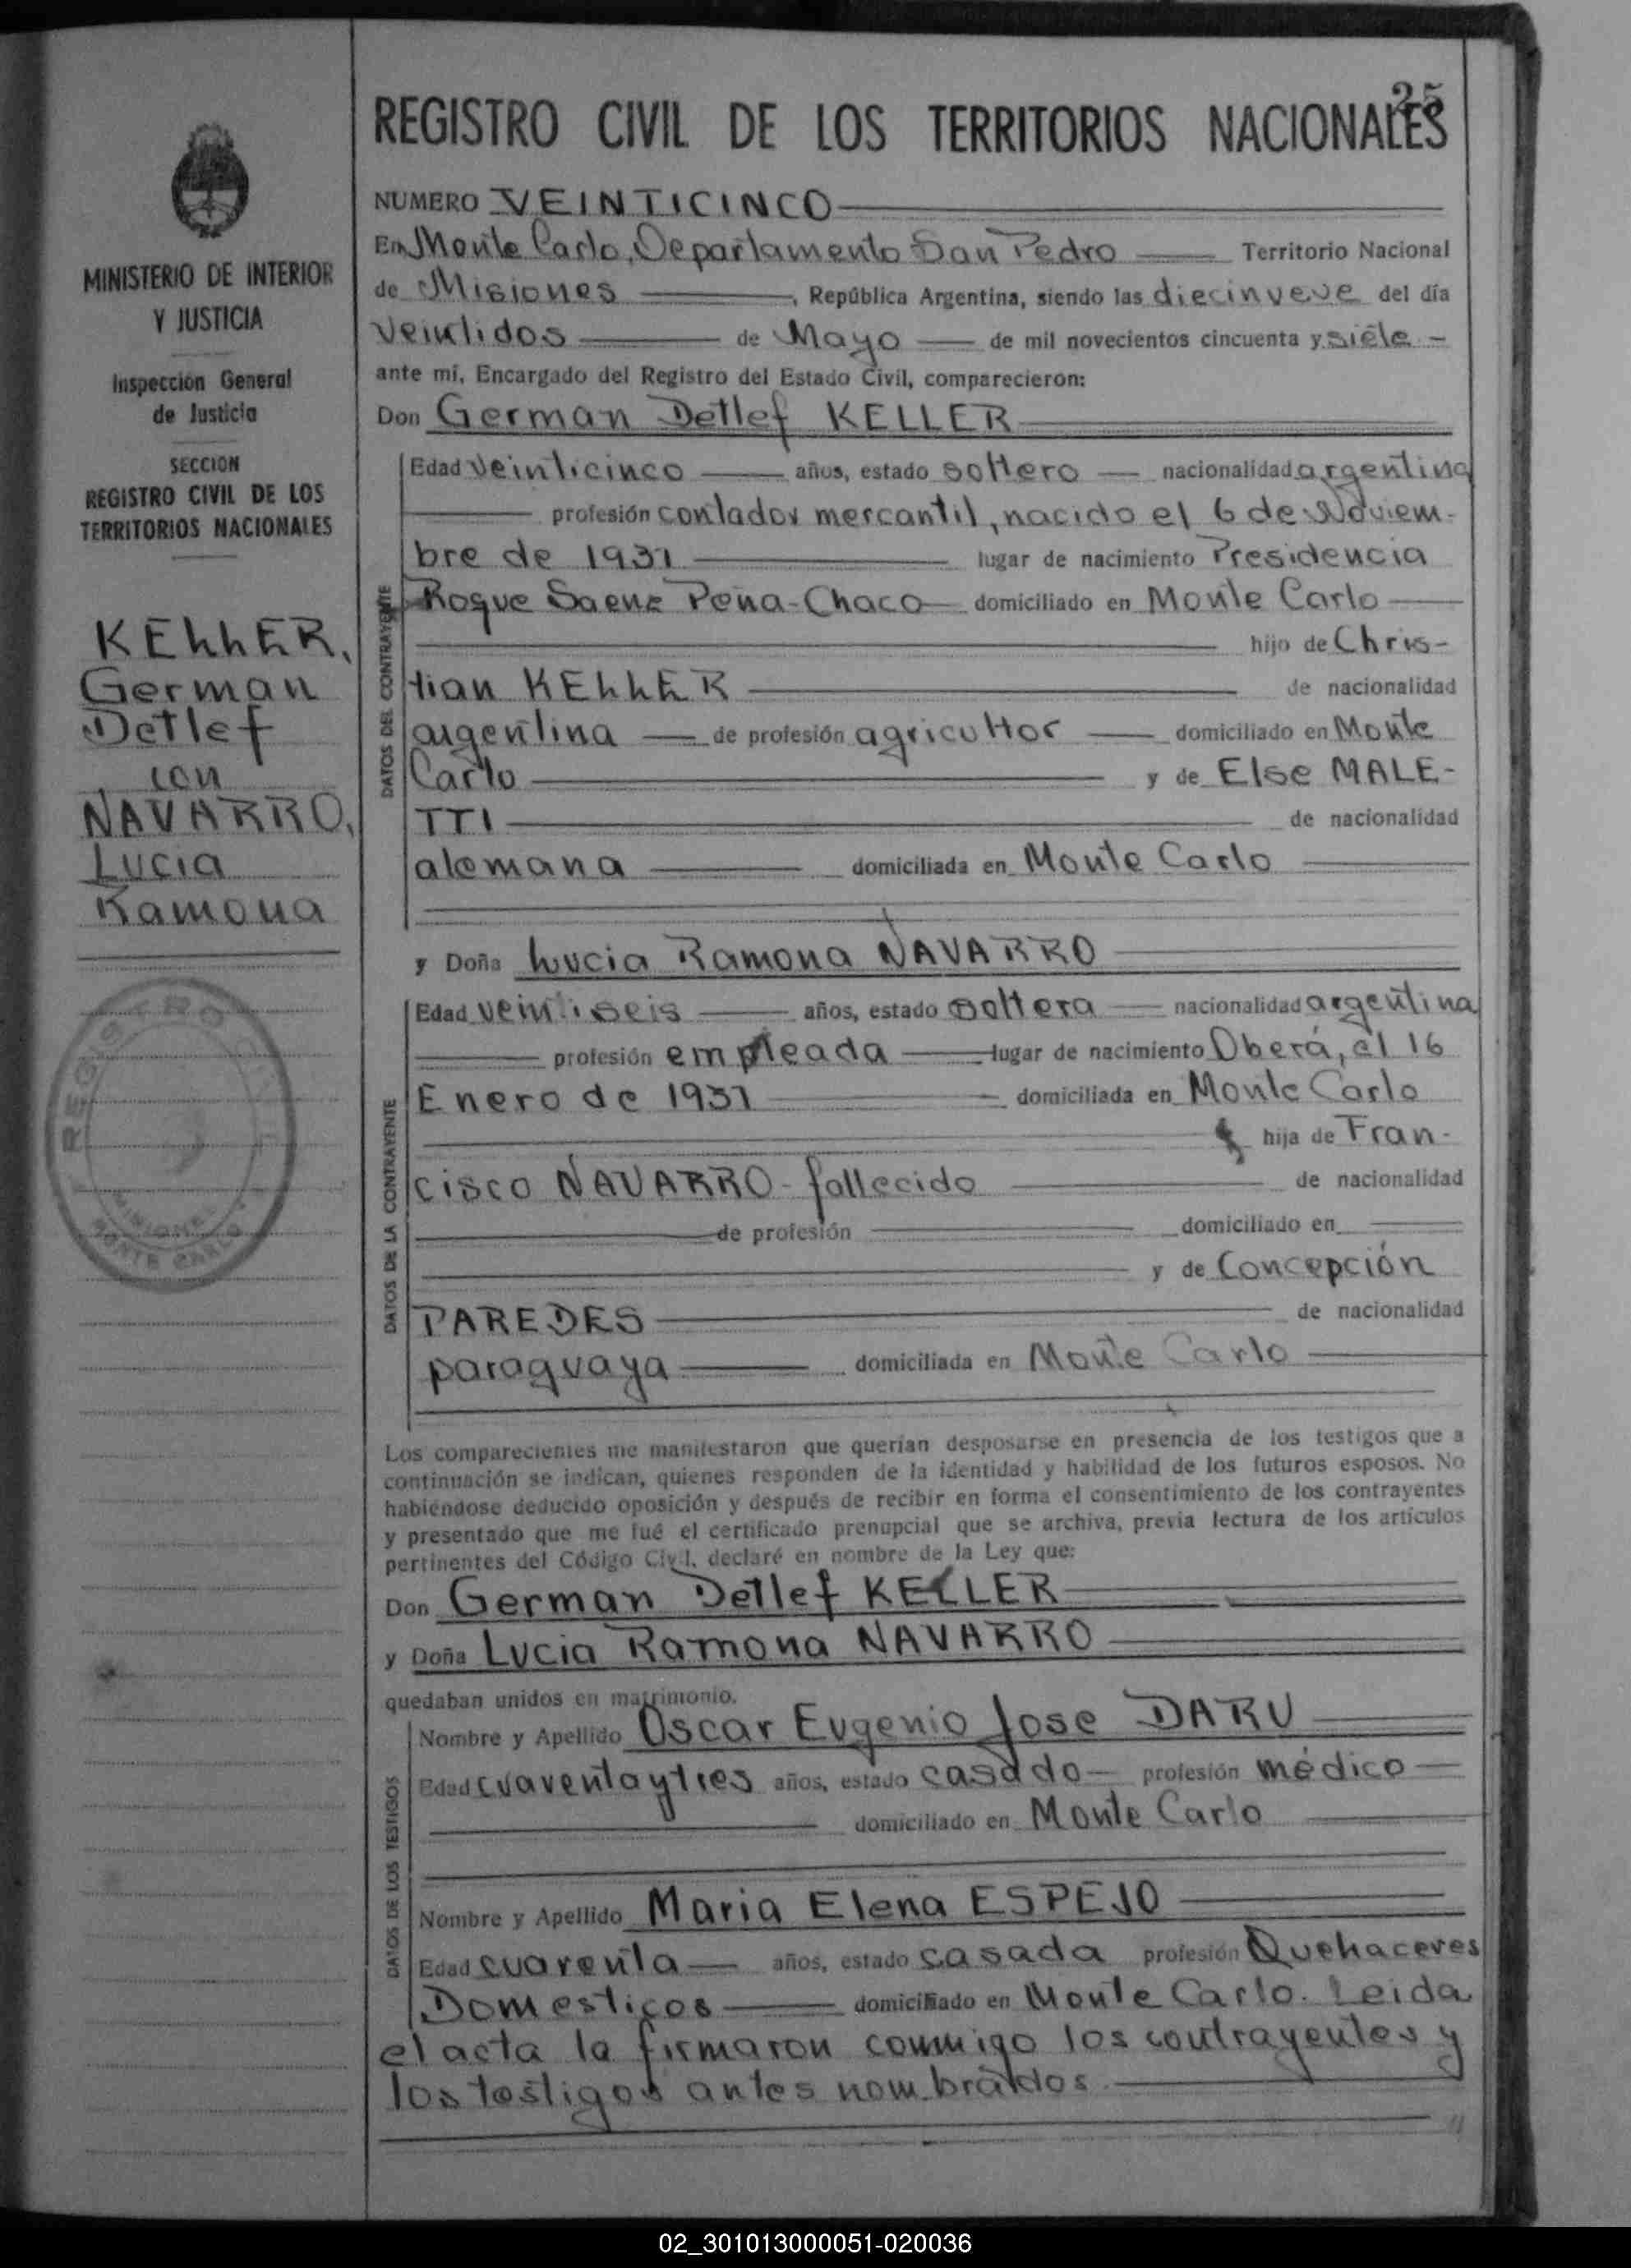 25
REGISTRO CIVIL DE LOS TERRITORIOS NACIONALES
MINISTERIO DE INTERIOR
Y JUSTICIA
Inspección General
de Justicia
SECCION
REGISTRO CIVIL DE LOS
TERRITORIOS NACIONALES
KELLER,
German
Detlef
con
NAVARRO,
Lucia
Ramona
REGISTRO CIVIL
MISIONES
MONTE CARLO
NUMERO VEINTICINCO
En Monte Carlo, Departamento San Pedro Territorio Nacional
de Misiones, República Argentina, siendo las diecinueve del día
veintidos de Mayo de mil novecientos cincuenta y siete -
ante mí, Encargado del Registro del Estado Civil, comparecieron:
Don German Detlef KELLER
DATOS DEL CONTRAYENTE
Edad veinticinco años, estado soltero nacionalidad argentina
profesión contador mercantil, nacido el 6 de Noviem-
bre de 1931 lugar de nacimiento Presidencia
Roque Saenz Peña-Chaco domiciliado en Monte Carlo
hijo de Chris-
tian KELLER de nacionalidad
argentina de profesión agricultor domiciliado en Monte
Carlo y de Else MALE-
TTI de nacionalidad
alemana domiciliada en Monte Carlo
y Doña Lucia Ramona NAVARRO
DATOS DE LA CONTRAYENTE
Edad veintiseis años, estado soltera nacionalidad argentina
profesión empleada lugar de nacimiento Oberá, el 16
Enero de 1931 domiciliada en Monte Carlo
hija de Fran-
cisco NAVARRO - fallecido de nacionalidad
de profesión domiciliado en
y de Concepción
PAREDES de nacionalidad
paraguaya domiciliada en Monte Carlo
Los comparecientes me manifestaron que querían desposarse en presencia de los testigos que a
continuación se indican, quienes responden de la identidad y habilidad de los futuros esposos. No
habiéndose deducido oposición y después de recibir en forma el consentimiento de los contrayentes
y presentado que me fué el certificado prenupcial que se archiva, previa lectura de los artículos
pertinentes del Código Civil, declaré en nombre de la Ley que:
Don German Detlef KELLER
y Doña Lucia Ramona NAVARRO
quedaban unidos en matrimonio.
DATOS DE LOS TESTIGOS
Nombre y Apellido Oscar Eugenio Jose DARU
Edad cuarentaytres años, estado casado profesión médico
domiciliado en Monte Carlo
Nombre y Apellido Maria Elena ESPEJO
Edad cuarenta años, estado casada profesión Quehaceres
Domesticos domiciliado en Monte Carlo. Leida
el acta la firmaron conmigo los contrayentes y
los testigos antes nombrados.
02_301013000051-020036